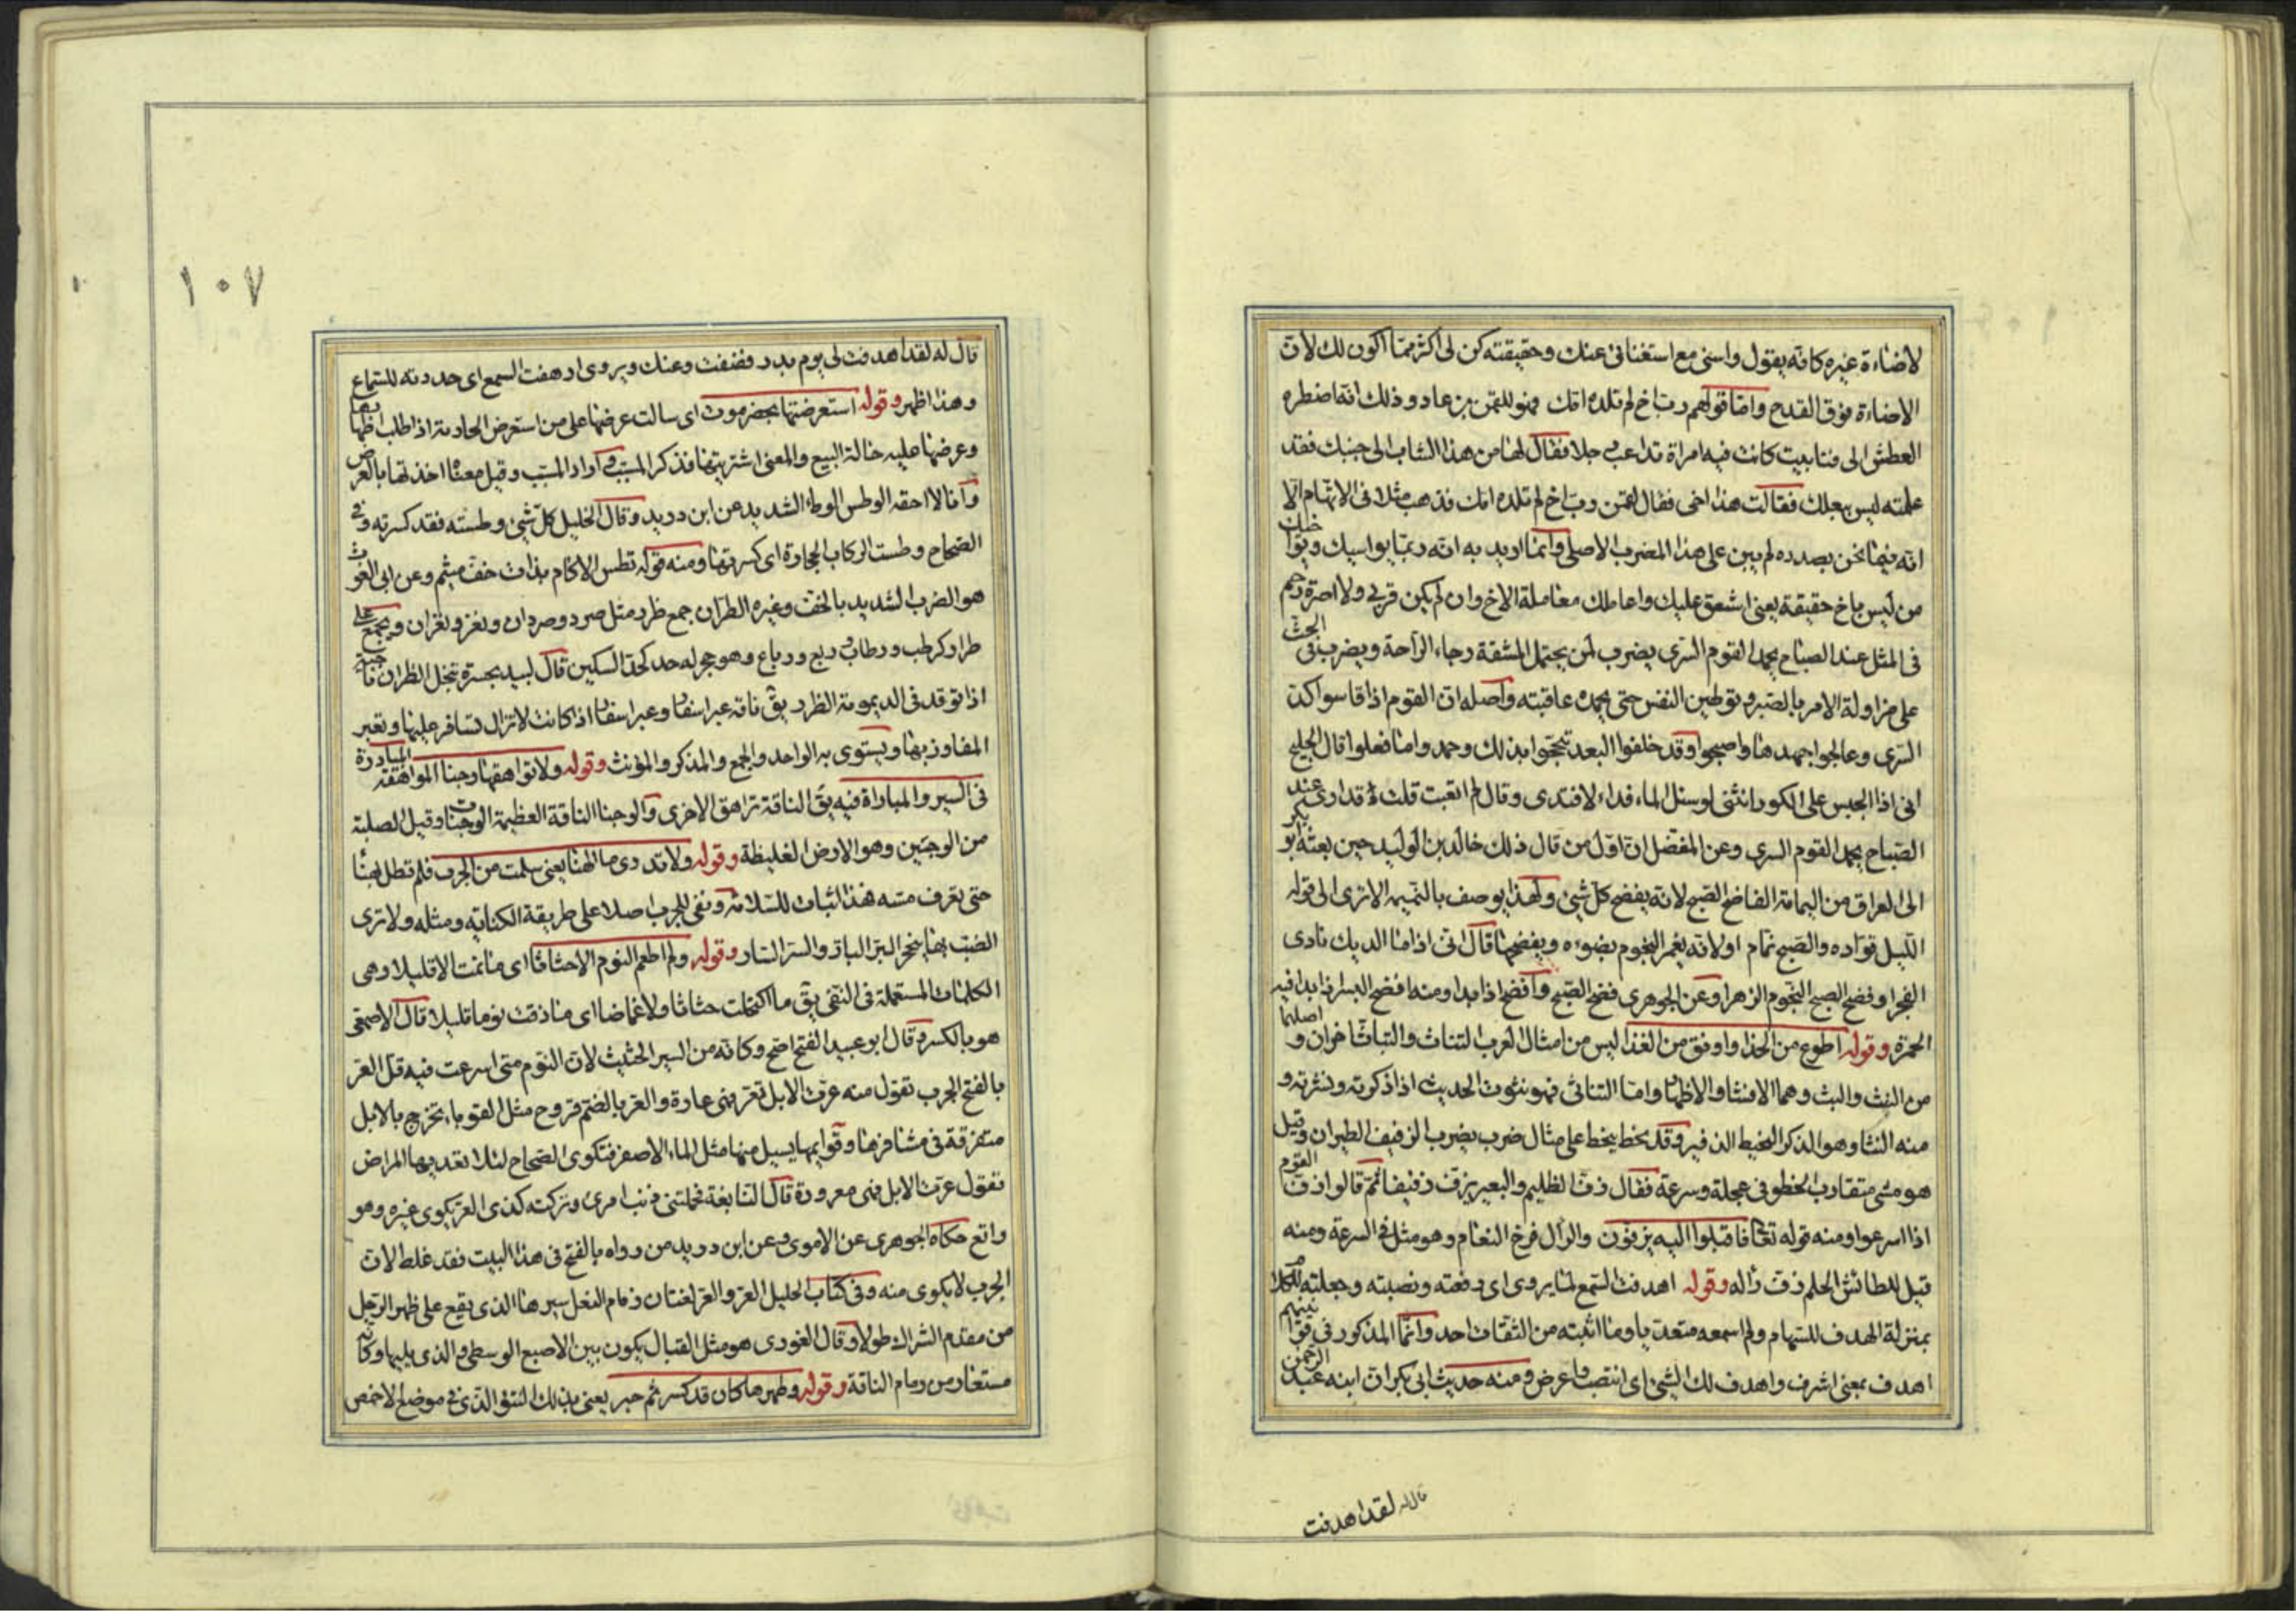 لاضاءة غيره كانه يقول واسنى مع استغنائى عنك وحقيقته كن لى اكثر مما اكون لك لان
الاضاءة فوق القدح واما قولهم رب اخ لم تلده امك فهو للقمن بن عاد وذلك انه اضطره
العطش الى فنا بيت كانت فيه امراة تداعب رجلا فقال لها من هذا الشاب الى جنبك فقد
علمته ليس ببعلك فقالت هذا اخى فقال لقمن رب اخ لم تلده امك فذهب مثلا فى الاتهام الا
انه فيما نحن بصدده لم يبن على هذا المضرب الاصلى وانما اريد به انه ربما يواسيك ويؤاخيك
من ليس باخ حقيقة يعنى اشفق عليك واعاملك معاملة الاخ وان لم يكن قربى ولا اصرة رحم
فى المثل عند الصباح يحمد القوم السرى يضرب لمن يحتمل المشقة رجاء الراحة ويضرب فى الحث
على مزاولة الامر بالصبر وتوطين النفس حتى يحمد عاقبته واصله ان القوم اذا قاسوا كد
السرى وعالجوا جهدها واصبحوا وقد خلفوا البعد تبجحوا بذلك وحمدوا ما فعلوا قال الجليح
انى اذا الجبس على الكور انثنى لو سئل الماء فداء لافتدى وقال كم اتعبت قلت قد ارى عند
الصباح يحمد القوم السرى وعن المفضل ان اول من قال ذلك خالد بن الوليد حين بعثه ابو بكر
الى العراق من اليمامة الفاضح الصبح لانه يفضح كل شئ ولهذا يوصف بالنميمة الا ترى الى قوله
الليل قواده والصبح نمام او لانه يغمر النجوم بضوءه ويفضحها قال انى اذا ما الديك نادى
الفجرا وفضح الصبح النجوم الزهرا وعن الجوهرى فضح الصبح وافضح اذا بدا ومنه افضح البسر اذا بدا فيه
الحمرة وقوله اطوع من الحذا واوفق من الغذا ليس من امثال العرب التناث والتباث اخوان واصلهما
من النث والبث وهما الافشا والاظهار واما التناثى فهو نثوت الحديث اذا ذكرته ونشرته و
منه النثا وهو الذكر الخيط الذفير وقد يخط يخط على مثال ضرب يضرب الزفيف الطيران وقيل
هو مشى متقارب الخطو فى عجلة وسرعة فقال زف الظليم والبعير يزف زفيفا ثم قالوا ازف القوم
اذا اسرعوا ومنه قوله تعالى فاقبلوا اليه يزفون والرال فرخ النعام وهو مثل فى السرعة ومنه
قيل للطائش الحلم زف راله وقوله اهدفت السمع لما يروى اى رفعته ونصبته وجعلته للكلام
بمنزلة الهدف للسهام ولم اسمعه متعديا وما اثبته من الثقات احد وانما المذكور فى قوانينهم
اهدف بمعنى اشرف واهدف لك الشئ اى انتصب واعرض ومنه حديث ابى بكر ان ابنه عبد الرحمن
قال له لقد اهدفت
١٠٧
قال له لقد اهدفت لى يوم بدر فضفت وعنك ويروى ارهفت السمع اى حددته للسماع
وهذا اظهر وقوله استعرضتها بحضرموت اى سالت عرضها على من استعرض الجارية اذا طلب اظهارها
وعرضها عليه حالة البيع والمعنى اشتريتها فذكر المسبب واراد المسبب وقيل معناه اخذتها بالعرض
وانا لا احقه الوطس الوطء الشديد عن ابن دريد وقال الخليل كل شئ وطسته فقد كسرته وفى
الصحاح وطست الركاب الحجارة اى كسرتها ومنه قوله تطس الاكام بذات خف ميثم وعن ابى الغوث
هو الضرب الشديد بالخف وغيره الظران جمع ظرر مثل صرد وصردان ونغر ونغران ويجمع على
ظرار كرطب ورطاب وربع ورباع وهو حجر له حد كحد السكين قال لبيد بجسرة تنجل الظران ناجية
اذا توقد فى الديمومة الظرر يق ناقة عبر اسفار وعبر اسفار اذا كانت لا تزال تسافر عليها وتعبر
المفاوز بها ويستوى به الواحد والجمع والمذكر والمؤنث وقوله ولا تواهقها وجنا المواهقة المباراة
فى السير والمباراة فيه يق الناقة تراهق الاخرى والوجنا الناقة العظيمة الوجنات وقيل الصلبة
من الوجين وهو الارض الغليظة وقوله ولا تدرى ما الهنا يعنى سلمت من الجرب فلم تطل بهنا
حتى يعرف مسه هذا اثبات للسلامة ونفى للجرب اصلا على طريقة الكناية ومثله ولا ترى
الضب بها ينجحر البر البار والسر السار وقوله ولم اطعم النوم الا حثاثا اى ما نمت الا قليلا وهى
الكلمات المستعملة فى النفى يق ما اكتحلت حثاثا ولا غماضا اى ما ذقت نوما قليلا قال الاصمعى
هو بالكسر وقال ابو عبيد الفتح اصح وكانه من السير الحثيث لان النوم متى اسرعت فيه قل العر
بالفتح الجرب تقول منه عرت الابل تعر فهى عارة والعر بالضم قروح مثل القوباء تخرج بالابل
متفرقة فى مشافرها وقوايمها يسيل منها مثل الماء الاصفر فتكوى الصحاح لئلا تعديها المراض
تقول عرت الابل فهى معرورة قال النابغة فحملتنى ذنب امرئ وتركته كذى العر يكوى غيره وهو
راتع حكاه الجوهرى عن الاموى وعن ابن دريد من رواه بالفتح فى هذا البيت فقد غلط لان
الجرب لا يكوى منه وفى كتاب الخليل العر والعر لغتان زمام النعل سيرها الذى يقع على ظهر الرجل
من مقدم الشراك طولا وقال الغورى هو مثل القبال يكون بين الاصبع الوسطى والذى يليها وكانه
مستعار من زمام الناقة وقوله وظهرها كان قد كسر ثم جبر يعنى بذلك الشق الذى فى موضع الاخمص